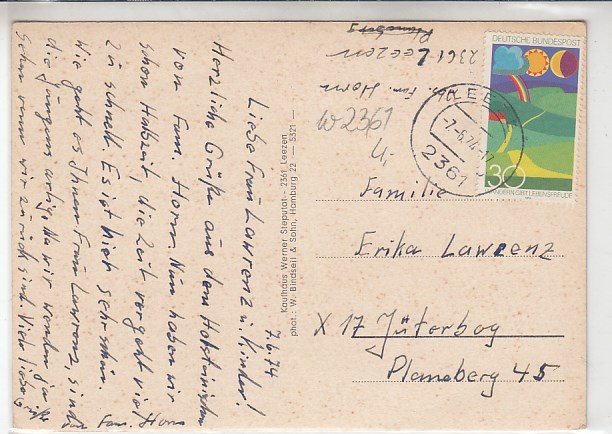 7.6.74
Liebe Frau Lawrenz u. Kinder!
Herzliche Grüße aus dem Holsteinischen
von Fam. Horn. Nun haben wir
schon Halbzeit, die Zeit vergeht viel
zu schnell. Es ist hier sehr schön.
Wie geht es Ihnen Frau Lawrenz, sind
die Jungens artig. Na wir werden ja
sehen wenn wir zurück sind. Viele liebe Grüße
Fam. Horn
Kaufhaus Werner Steputat — 2361 Leezen
phot.: W. Bindseil & Sohn, Hamburg 22 — 5321 —
Fam. Horn
2361 Leezen
W2361
DEUTSCHE BUNDESPOST
30
WANDERN GIBT LEBENSFREUDE
LEEZ
-7.-6.74-17
2361
Familie
Erika Lawrenz
X 17 Jüterbog
Planeberg 45